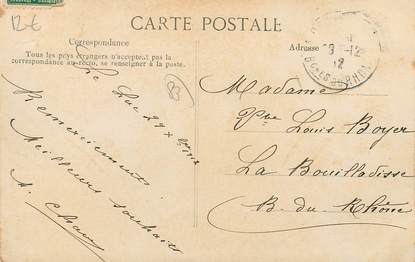 12€
CARTE POSTALE
Correspondance
Tous les pays étrangers n'acceptent pas la
correspondance au recto, se renseigner à la poste.
Adresse
12
BCHES DU RHÔNE
83
Le Luc 29
Remerciements
Meilleurs souhaits
Madame
Vve Louis Boyer
La Bouilladisse
B. du Rhône